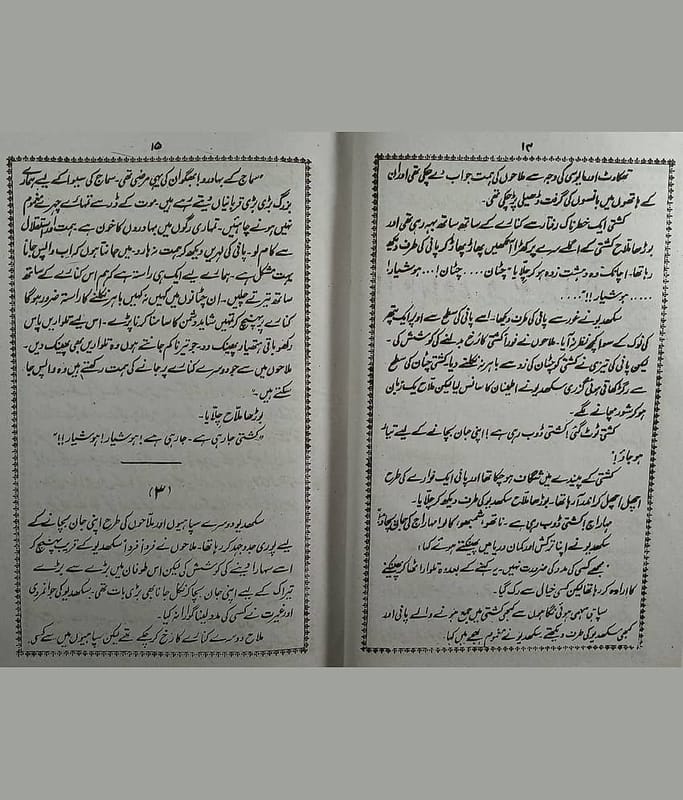 ۱۴
تھکاوٹ اور مایوسی کی وجہ سے ملاحوں کی ہمت جواب دے چکی تھی اور ان
کے ہاتھوں میں بانسوں کی گرفت ڈھیلی پڑ چکی تھی۔
کشتی ایک خطرناک رفتار سے کنارے کے ساتھ ساتھ بہہ رہی تھی اور
بوڑھا ملاح کشتی کے اگلے سرے پر کھڑا آنکھیں پھاڑ پھاڑ کر پانی کی طرف دیکھ
رہا تھا۔ اچانک وہ دہشت زدہ ہو کر چلّایا "چٹان .... چٹان !... ہوشیار!
..... ہوشیار!!" ....
سکھدیو نے غور سے پانی کی طرف دیکھا۔ اسے پانی کی سطح سے اوپر ایک پتھر
کی نوک کے سوا کچھ نظر نہ آیا۔ ملاحوں نے فوراً کشتی کا رخ بدلنے کی کوشش کی۔
لیکن پانی کی تیزی نے کشتی کو چٹان کی زد سے باہر نہ نکلنے دیا کشتی چٹان کی سطح
سے رگڑ کھاتی ہوئی گزری سکھدیو نے اطمینان کا سانس لیا لیکن ملاح یک زبان
ہو کر شور مچانے لگے۔
کشتی ٹوٹ گئی! کشتی ڈوب رہی ہے!! اپنی جان بچانے کے لیے تیار
ہو جاؤ!
کشتی کے پیندے میں شگاف ہو چکا تھا اور پانی ایک فوارے کی طرح
اچھل اچھل کر اندر آ رہا تھا۔ بوڑھا ملاح سکھدیو کی طرف دیکھ کر چلایا۔
مہاراج! کشتی ڈوب رہی ہے۔ ناتھو، شمبھو، کالو! مہاراج کی جان بچاؤ"
سکھدیو نے اپنا ترکش اور کمان دریا میں پھینکتے ہوئے کہا۔
مجھے کسی کی مدد کی ضرورت نہیں۔ یہ کہنے کے بعد وہ تلوار اٹھا کر پھینکنے
کا ارادہ کر رہا تھا لیکن کسی خیال سے رک گیا۔
سپاہی سہمی ہوئی نگاہوں سے کبھی کشتی میں جمع ہونے والے پانی اور
کبھی سکھدیو کی طرف دیکھتے سکھدیو نے مغموم لہجے میں کہا۔
۱۵
"سماج کے بہادرو! بھگوان کی یہی مرضی تھی۔ سماج کی سیوا کے لیے ہمارے
بزرگ بڑی بڑی قربانیاں دیتے رہے ہیں۔ موت کے ڈر سے تمہارے چہرے مغموم
نہیں ہونے چاہئیں۔ تمہاری رگوں میں بہادروں کا خون ہے۔ ہمت اور استقلال
سے کام لو۔ پانی کی لہریں دیکھ کر ہمت نہ ہارو۔ میں جانتا ہوں کہ اب واپس جانا
بہت مشکل ہے۔ ہمارے لیے ایک ہی راستہ ہے کہ ہم اس کنارے کے ساتھ
ساتھ تیرتے چلیں۔ ان چٹانوں میں کہیں نہ کہیں باہر نکلنے کا راستہ ضرور ہوگا
کنارے پر پہنچ کر تمہیں شاید دشمن کا سامنا کرنا پڑے۔ اس لیے تلواریں پاس
رکھو باقی ہتھیار پھینک دو۔ جو تیرنا کم جانتے ہوں وہ تلواریں بھی پھینک دیں۔
ملاحوں میں سے جو دوسرے کنارے پر جانے کی ہمت رکھتے ہیں وہ واپس جا
سکتے ہیں۔"
بوڑھا ملاح چلّایا۔
"کشتی جا رہی ہے۔ جا رہی ہے! ہوشیار! ہوشیار!!"
(۳)
سکھدیو دوسرے سپاہیوں اور ملاحوں کی طرح اپنی جان بچانے کے
لیے پوری جدوجہد کر رہا تھا۔ ملاحوں نے فرداً فرداً سکھدیو کے قریب پہنچ کر
اسے سہارا دینے کی کوشش کی لیکن اس طوفان میں بڑے سے بڑے
تیراک کے لیے اپنی جان بچا کر نکل جانا بھی بڑی بات تھی۔ سکھدیو کی جوانمردی
اور غیرت نے کسی کی مدد لینا گوارا نہ کیا۔
ملاح دوسرے کنارے کا رخ کر چکے تھے لیکن سپاہیوں میں سے کسی